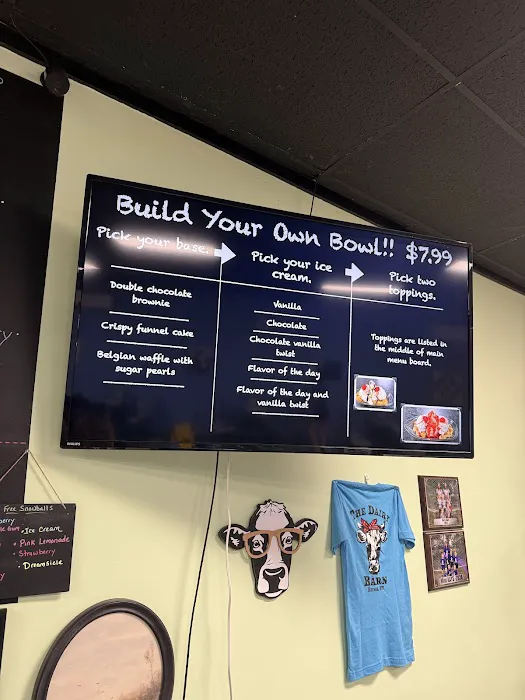 Build Your Own Bowl!! $7.99
Pick your base.
Double chocolate
brownie
Crispy funnel cake
Belgian waffle with
sugar pearls
Pick your ice
cream.
Vanilla
Chocolate
Chocolate vanilla
twist
Flavor of the day
Flavor of the day and
vanilla twist
Pick two
toppings.
Toppings are listed in
the middle of main
menu board.
PHILIPS
Free Snowballs
• Ice Cream
• Pink Lemonade
• Strawberry
• Dreamsicle
THE DAIRY
BARN